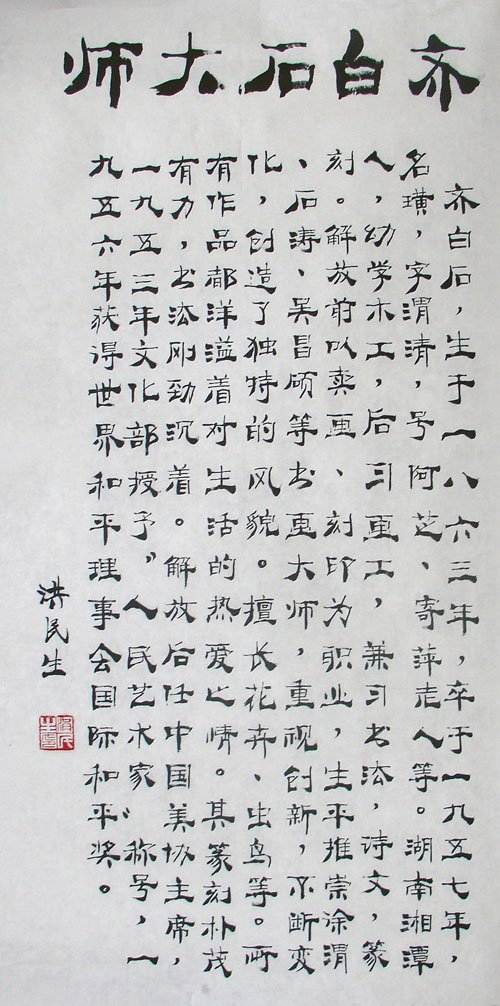 齐白石大师
齐白石，生于一八六三年，卒于一九五七年，
名璜，字渭清，号阿芝、寄萍老人等。湖南湘潭
人，幼学木工，后习画工，兼习书法，诗文，篆
刻。解放前以卖画、刻印为职业，生平推崇徐渭
、石涛、吴昌硕等书画大师，重视创新，不断变
化，创造了独特的风貌。擅长花卉、虫鸟等。所
有作品都洋溢着对生活的热爱之情。其篆刻朴茂
有力，书法刚劲沉着。解放后任中国美协主席，
一九五三年文化部授予“人民艺术家”称号，一
九五六年获得世界和平理事会国际和平奖。
洪民生